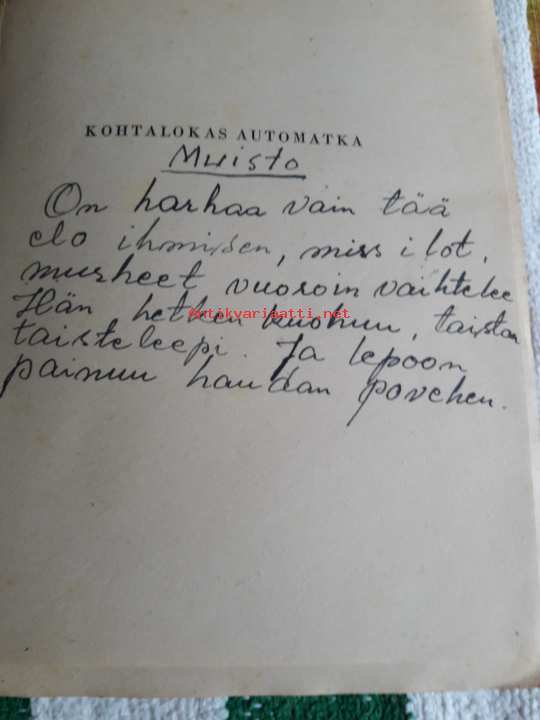 KOHTALOKAS AUTOMATKA
Muisto
On harhaa vain tää
elo ihmisen, miss ilot,
murheet vuoroin vaihtelee
Hän hetken kuohuu, taistan
Antikvariaatti.net
taisteleepi. Ja lepoon
painuu haudan povehen.